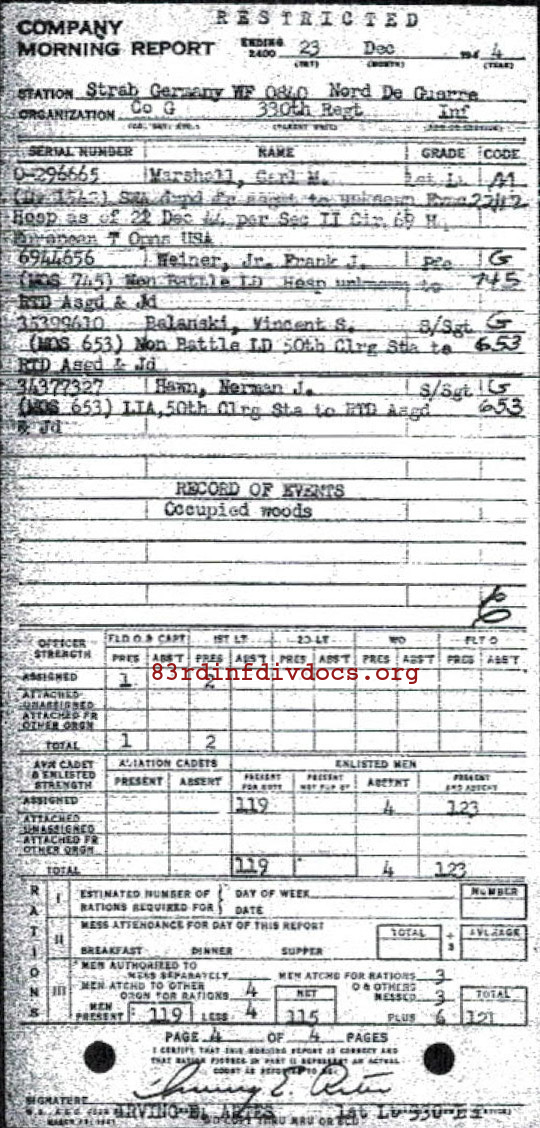 RESTRICTED
COMPANY
MORNING REPORT ENDING 2400 23 Dec 194 4
(DAY) (MONTH) (YEAR)
STATION Strab Germany WF 0840 Nord De Guerre
ORGANIZATION Co G 330th Regt Inf
SERIAL NUMBER NAME GRADE CODE
O-296665 Marshall, Carl M. 1st Lt
Hosp as of 22 Dec 44 per Sec II Cir 69 H
European T Opns USA
6944656 Weiner, Jr. Frank J. Pfc G
(MOS 745) Non Battle LD Hosp unknown to 745
RTD Asgd & Jd
35399610 Belanski, Vincent S. S/Sgt G
(MOS 653) Non Battle LD 50th Clrg Sta to 653
RTD Asgd & Jd
34377327 Hawn, Nerman J. S/Sgt G
(MOS 653) LIA, 50th Clrg Sta to RTD Asgd 653
& Jd
RECORD OF EVENTS
Occupied woods
OFFICER STRENGTH FLD O & CAPT 1ST LT 2D LT WO FLT O
PRES ABS'T PRES ABS'T PRES ABS'T PRES ABS'T PRES ABS'T
83rdinfdivdocs.org
ASSIGNED 1 2
ATTACHED UNASSIGNED
ATTACHED FR OTHER ORGN
TOTAL 1 2
AVN CADET & ENLISTED STRENGTH AVIATION CADETS ENLISTED MEN
PRESENT ABSENT PRESENT FOR DUTY PRESENT NOT FOR DY ABSENT PRESENT AND ABSENT
ASSIGNED 119 4 123
ATTACHED UNASSIGNED
ATTACHED FR OTHER ORGN
TOTAL 119 4 123
RATIONS
I ESTIMATED NUMBER OF RATIONS REQUIRED FOR DAY OF WEEK DATE NUMBER
II MESS ATTENDANCE FOR DAY OF THIS REPORT TOTAL ÷ 3 AVERAGE
BREAKFAST DINNER SUPPER
III MEN AUTHORIZED TO MESS SEPARATELY MEN ATCHD FOR RATIONS 3
MEN ATCHD TO OTHER ORGN FOR RATIONS 4 NET O & OTHERS MESSED 3 TOTAL
MEN PRESENT 119 LESS 4 115 PLUS 6 121
PAGE 4 OF 4 PAGES
I CERTIFY THAT THIS MORNING REPORT IS CORRECT AND
THAT RATION FIGURES IN PART II REPRESENT AN ACTUAL
SIGNATURE